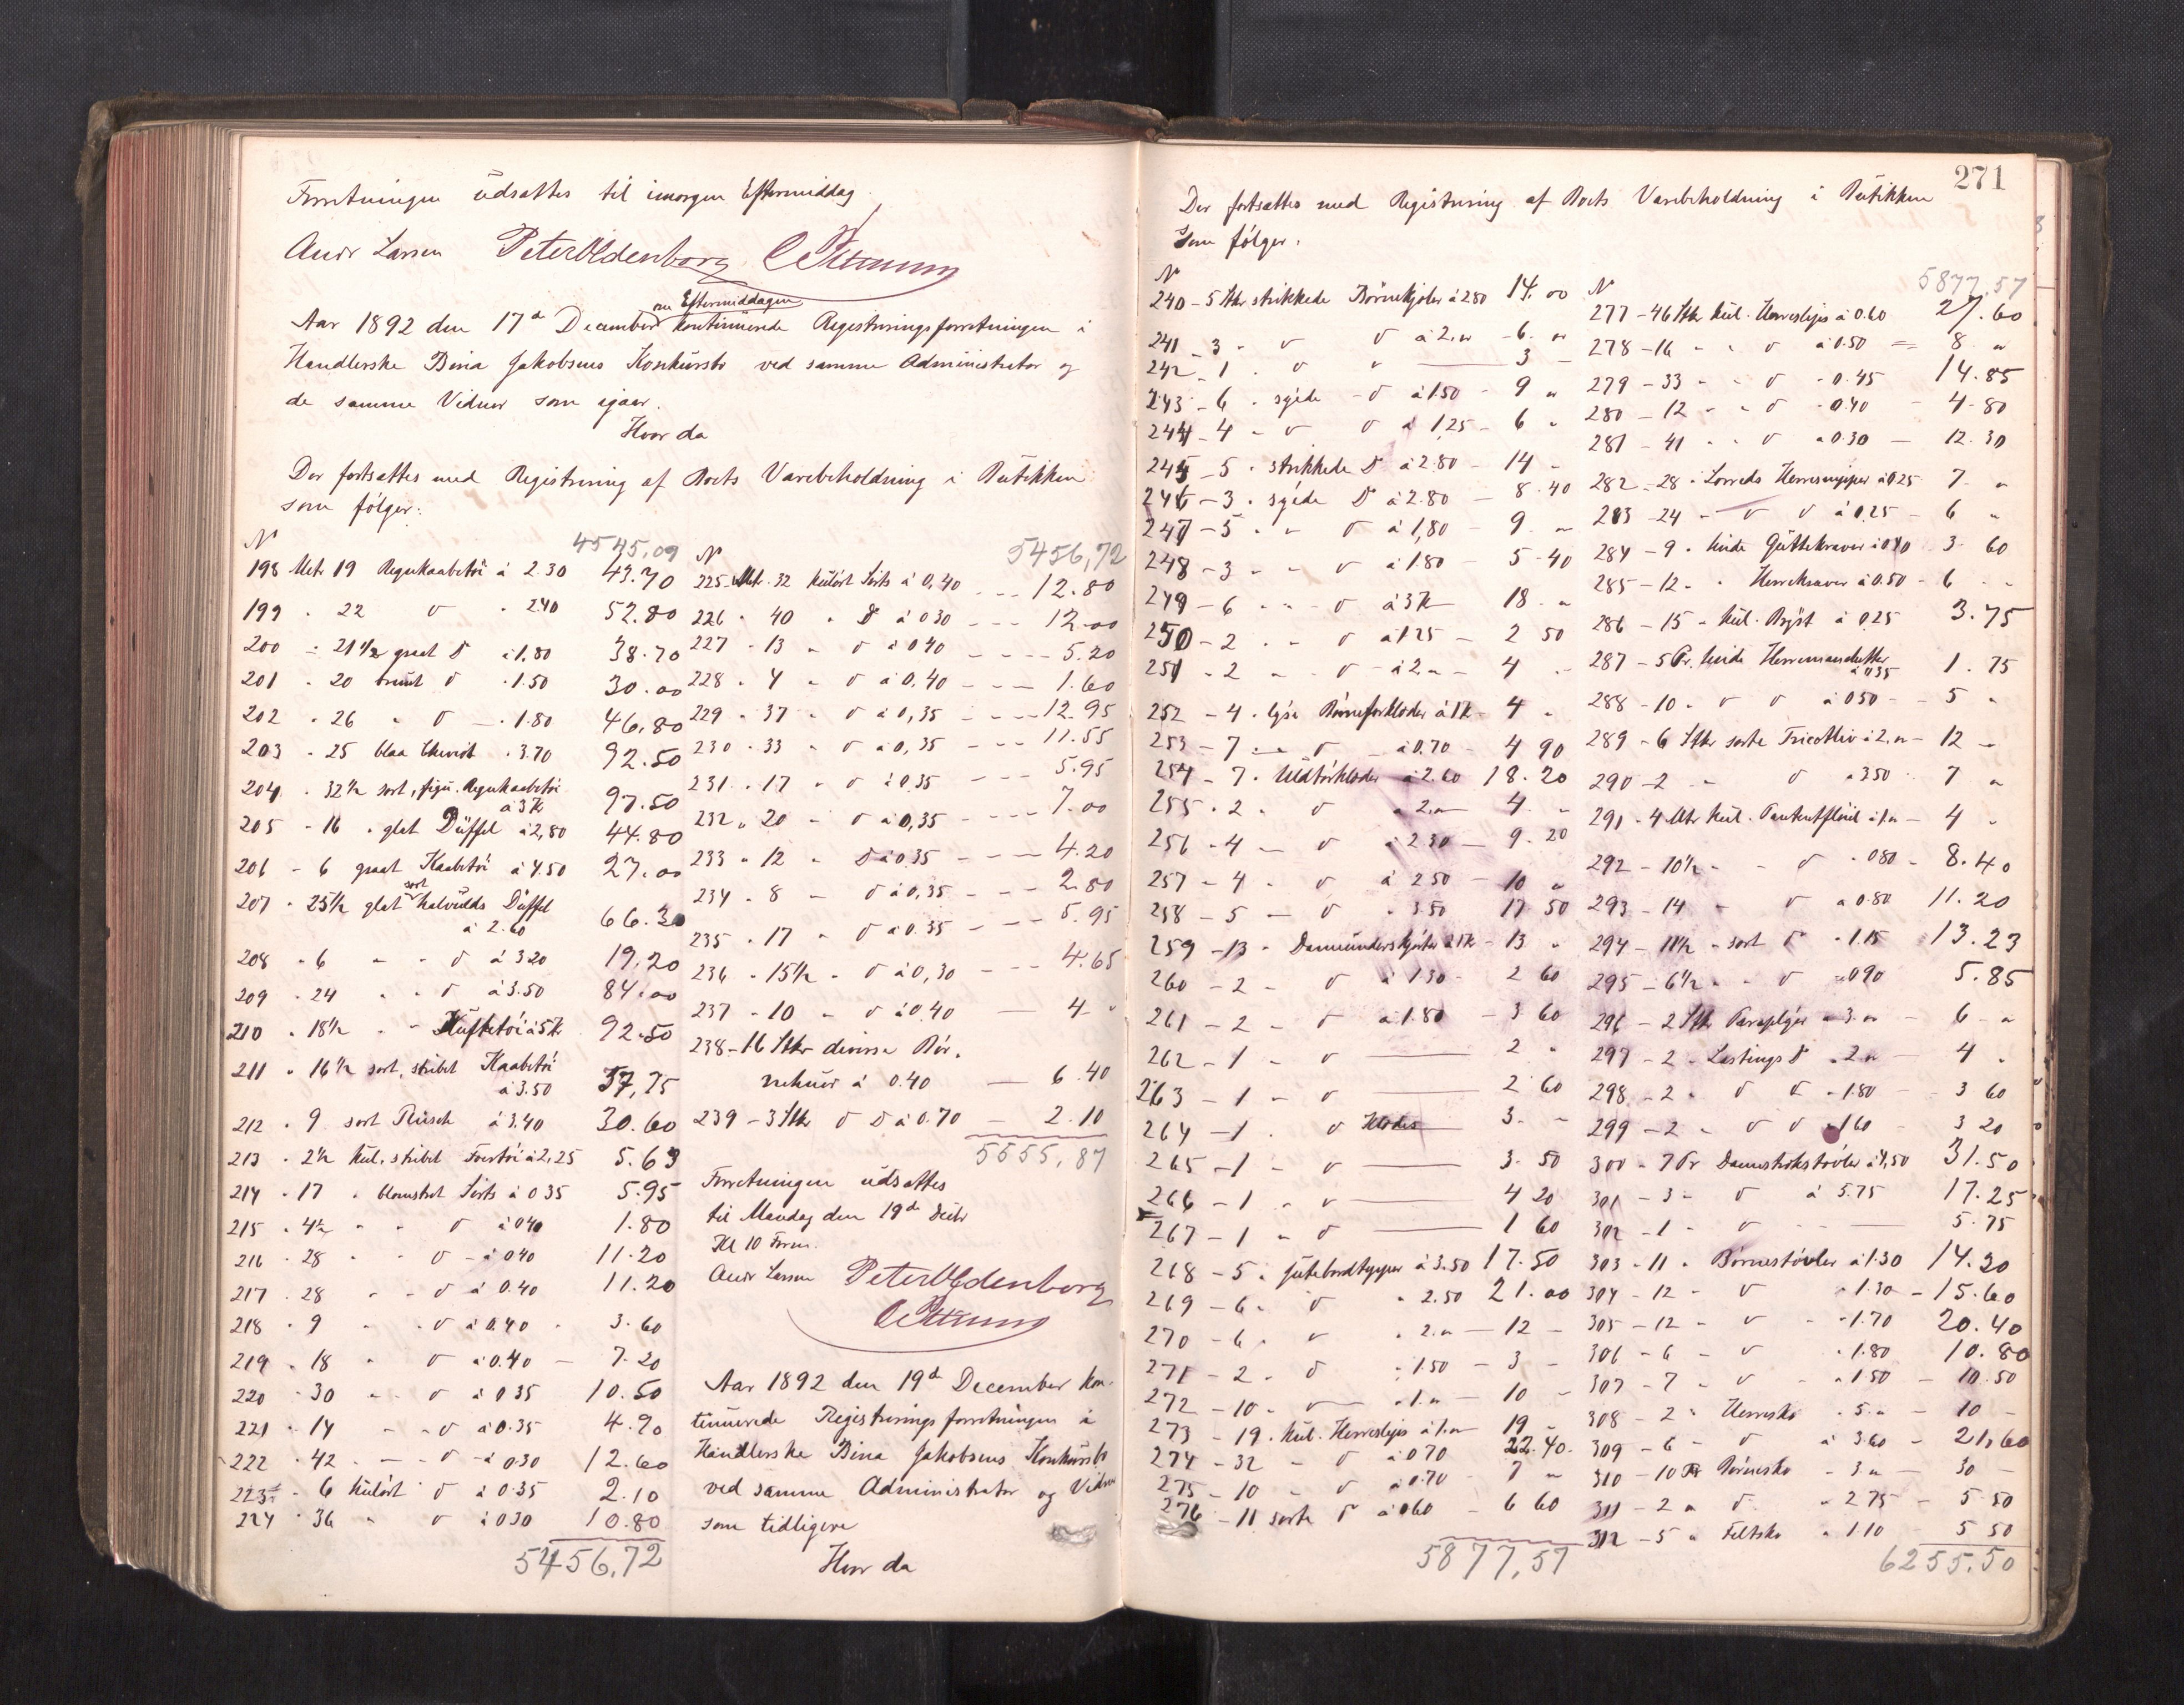 Forretningen udsattes til imorgen Eftermiddag.
Andr Larsen Peter Oldenborg
om Eftermiddagen
Aar 1892 den 17de December kontinuerede Registreringsforretningen i
Handlerske Bina Jakobsens Konkursbo ved samme Administrator og
de samme Vidner som igaar.
Hvor da
Der fortsattes med Registrering af Boets Varebeholdning i Butikken
som følger:
N 4545,09
198 Metr. 19 Regnkaabetøi à 2.30 43.70
199 " 22 d " 2.40 52.80
200 " 21 1/2 graat d à 1,80 38.70
201 " 20 brunt d " 1.50 30.00
202 " 26 " d " 1.80 46.80
203 " 25 blaa Cheviot " 3.70 92.50
204 " 32 1/2 sort, figu. Regnkaabetøi
à 3 K 97.50
205 " 16 " glat Düffel à 2,80 44.80
206 " 6 graat Kaabetøi à 4.50 27.00
sort
207 " 25 1/2 glat halvulds Düffel
à 2.60 66.30
208 " 6 " " d à 3.20 19.20
209 " 24 " " d à 3.50 84.00
210 " 18 1/2 " " à 5 K 92.50
211 " 16 1/2 sort, stribet Kaabetøi
à 3.50 57,75
212 " 9 sort Plusch à 3.40 30.60
213 " 2 1/2 kul. stribet Foertøi à 2,25 5.63
214 " 17 " blomstret Sirts à 0 35 5.95
215 " 4 1/2 " " d à 0 40 1.80
216 " 28 " " d à 0 40 11.20
217 " 28 " " d à 0.40 11.20
218 " 9 " " d à 0.40 3.60
219 " 18 " d à 0.40 7.20
220 " 30 " " d à 0 35 10.50
221 " 14 " " d à 0.35 4.90
222 " 42 " " d à 0.30 12.60
223 " 6 kulørt d à 0.35 2.10
224 " 36 " d à 0 30 10.80
5456,72
N 5456,72
225 Metr. 32 kulørt Sirts à 0,40 12.80
226 " 40 " d à 0 30 12.00
227 " 13 " d à 0 40 5.20
228 " 4 " d à 0,40 1.60
229 " 37 " d à 0,35 12.95
230 " 33 " d à 0,35 11.55
231 " 17 " d à 0.35 5.95
232 " 20 " d à 0,35 7.00
233 " 12 " d à 0.35 4.20
234 " 8 " d à 0,35 2.80
235 " 17 " d à 0.35 5.95
236 " 15 1/2 " d à 0,30 4.65
237 " 10 " d à 0.40 4 "
238 - 16 Stkr diverse Bør.
à 0.40 6.40
239 - 3 Stkr d d à 0.70 2.10
5555,87
Forretningen udsattes
til Mandag den 19de Decbr
Kl 10 Form.
Andr Larsen Peter Oldenborg
Aar 1892 den 19de December kon-
tinuerede Registreringsforretningen i
Handlerske Bina Jakobsens Konkursbo
ved samme Administrator og Vidner
som tidligere
Hvor da
271
Der fortsattes med Registrering af Boets Varebeholdning i Butikken
som følger:
N
240 - 5 Stkr strikkede Børnekjoler à 2 80 14.00
241 - 3 " d d à 2." 6. "
242 - 1 " d " 3 -
243 - 6 " syede - d à 1.50 - 9 "
244 - 4 " d d à 1,25 - 6 "
245 - 5 " strikkede d à 2.80 - 14 -
246 - 3 " syede d à 2.80 - 8.40
247 - 5 " " d à 1,80 - 9 "
248 - 3 " " d à 1.80 5.40
249 - 6 " " d à 3 K 18. "
250 - 2 " " d à 1 25 - 2 50
251 - 2 " " d à 2 " - 4 "
252 - 4 " lyse Børneforklæder à 1 K 4 "
253 - 7 " " d à 0.70 4 90
254 - 7 " Uldtørklæder à 2.60 18.20
255 - 2 " d à 2. " 4 "
256 - 4 " d à 2 30 9.20
257 - 4 " d à 2 50 - 10 "
258 - 5 " d " 3.50 17 50
259 - 13 " Dameunderskjørter à 1 K - 13 "
260 - 2 " d à 1 30 - 2 60
261 - 2 " d à 1.80 - 3 60
262 - 1 " d 2 "
263 - 1 " d 2 60
264 - 1 " d 3. -
265 - 1 " d 3. 50
266 - 1 " d 4 20
267 - 1 " d 1 60
268 - 5 " Jutebordtepper à 3.50 17.50
269 - 6 " d " 2.50 21.00
270 - 6 " d " 2. " - 12 -
271 - 2 " d " 1.50 - 3 -
272 - 10 " " 1. " - 10 -
273 - 19 " kul. Herreslips à 1. " 19 -
274 - 32 " d à 0 70 22.40
275 - 10 " d à 0.70 7 "
276 - 11 sorte d à 0 60 6 60
5877,57
N 5877.57
277 - 46 Stkr kul. Herreslips à 0.60 27.60
278 - 16 " " d à 0.50 8 "
279 - 33 " " d " 0.45 14.85
280 - 12 " " d " 0.40 4.80
281 - 41 " " d " 0.30 12.30
282 - 28 " Lærreds Herresnipper à 0.25 7 "
283 - 24 " d d à 0,25 - 6 "
284 - 9 " hvide Guttekraver à 0 40 3 60
285 - 12 " " Herrekraver à 0.50 - 6 "
286 - 15 " kul. Bryst à 0 25 3.75
287 - 5 Pr. hvide Herremanchetter
à 0 35 1.75
288 - 10 " d d à 0 50 - 5 "
289 - 6 Stkr sorte Tricotliv à 2. " - 12 -
290 - 2 " d à 3 50 7 "
291 - 4 Mtr kul. Patentfløiel à 1 " - 4 "
292 - 10 1/2 " " d " 0 80 - 8.40
293 - 14 " " d à 0.80 11.20
294 - 11 1/2 " sort d " 1.15 13.23
295 - 6 1/2 " " d " 0 90 5.85
296 - 2 Stkr Paraplyer " 3. " 6 "
297 - 2 " Lastings d " 2 " 4 "
298 - 2 " d d " 1.80 3 60
299 - 2 " d d " 1 60 3 20
300 - 7 Pr Damestøvler à 4,50 31.50
301 - 3 " d à 5.75 17.25
302 - 1 " d 5.75
303 - 11 " Børnestøvler à 1.30 14.30
304 - 12 " d " 1.30 - 15.60
305 - 12 " d " 1.70 20.40
306 - 6 " d " 1.80 10.80
307 - 7 " d " 1 50 10.50
308 - 2 " Herresko " 5. " - 10 -
309 - 6 " d à 3.60 21,60
310 - 10 Pr Børnesko " 3. " 30 -
311 - 2 " d " 2 75 5.50
312 - 5 " Filtsko " 1.10 5 50
6255.50